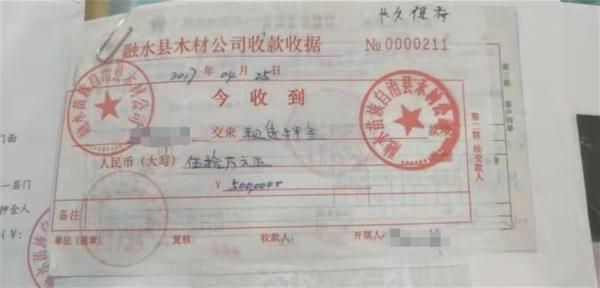 长久保存
融水县木材公司收款收据 №0000211
2017年04月25日
融水苗族自治县木材公司
今收到
融水苗族自治县木材公司
交来 租赁押金
第二联 给交款人
人民币（大写） 伍拾万元正
¥ 500,000
备注
单位（盖章） 复核 收款人： 开票人：
门面
一层门
押金人
（¥：